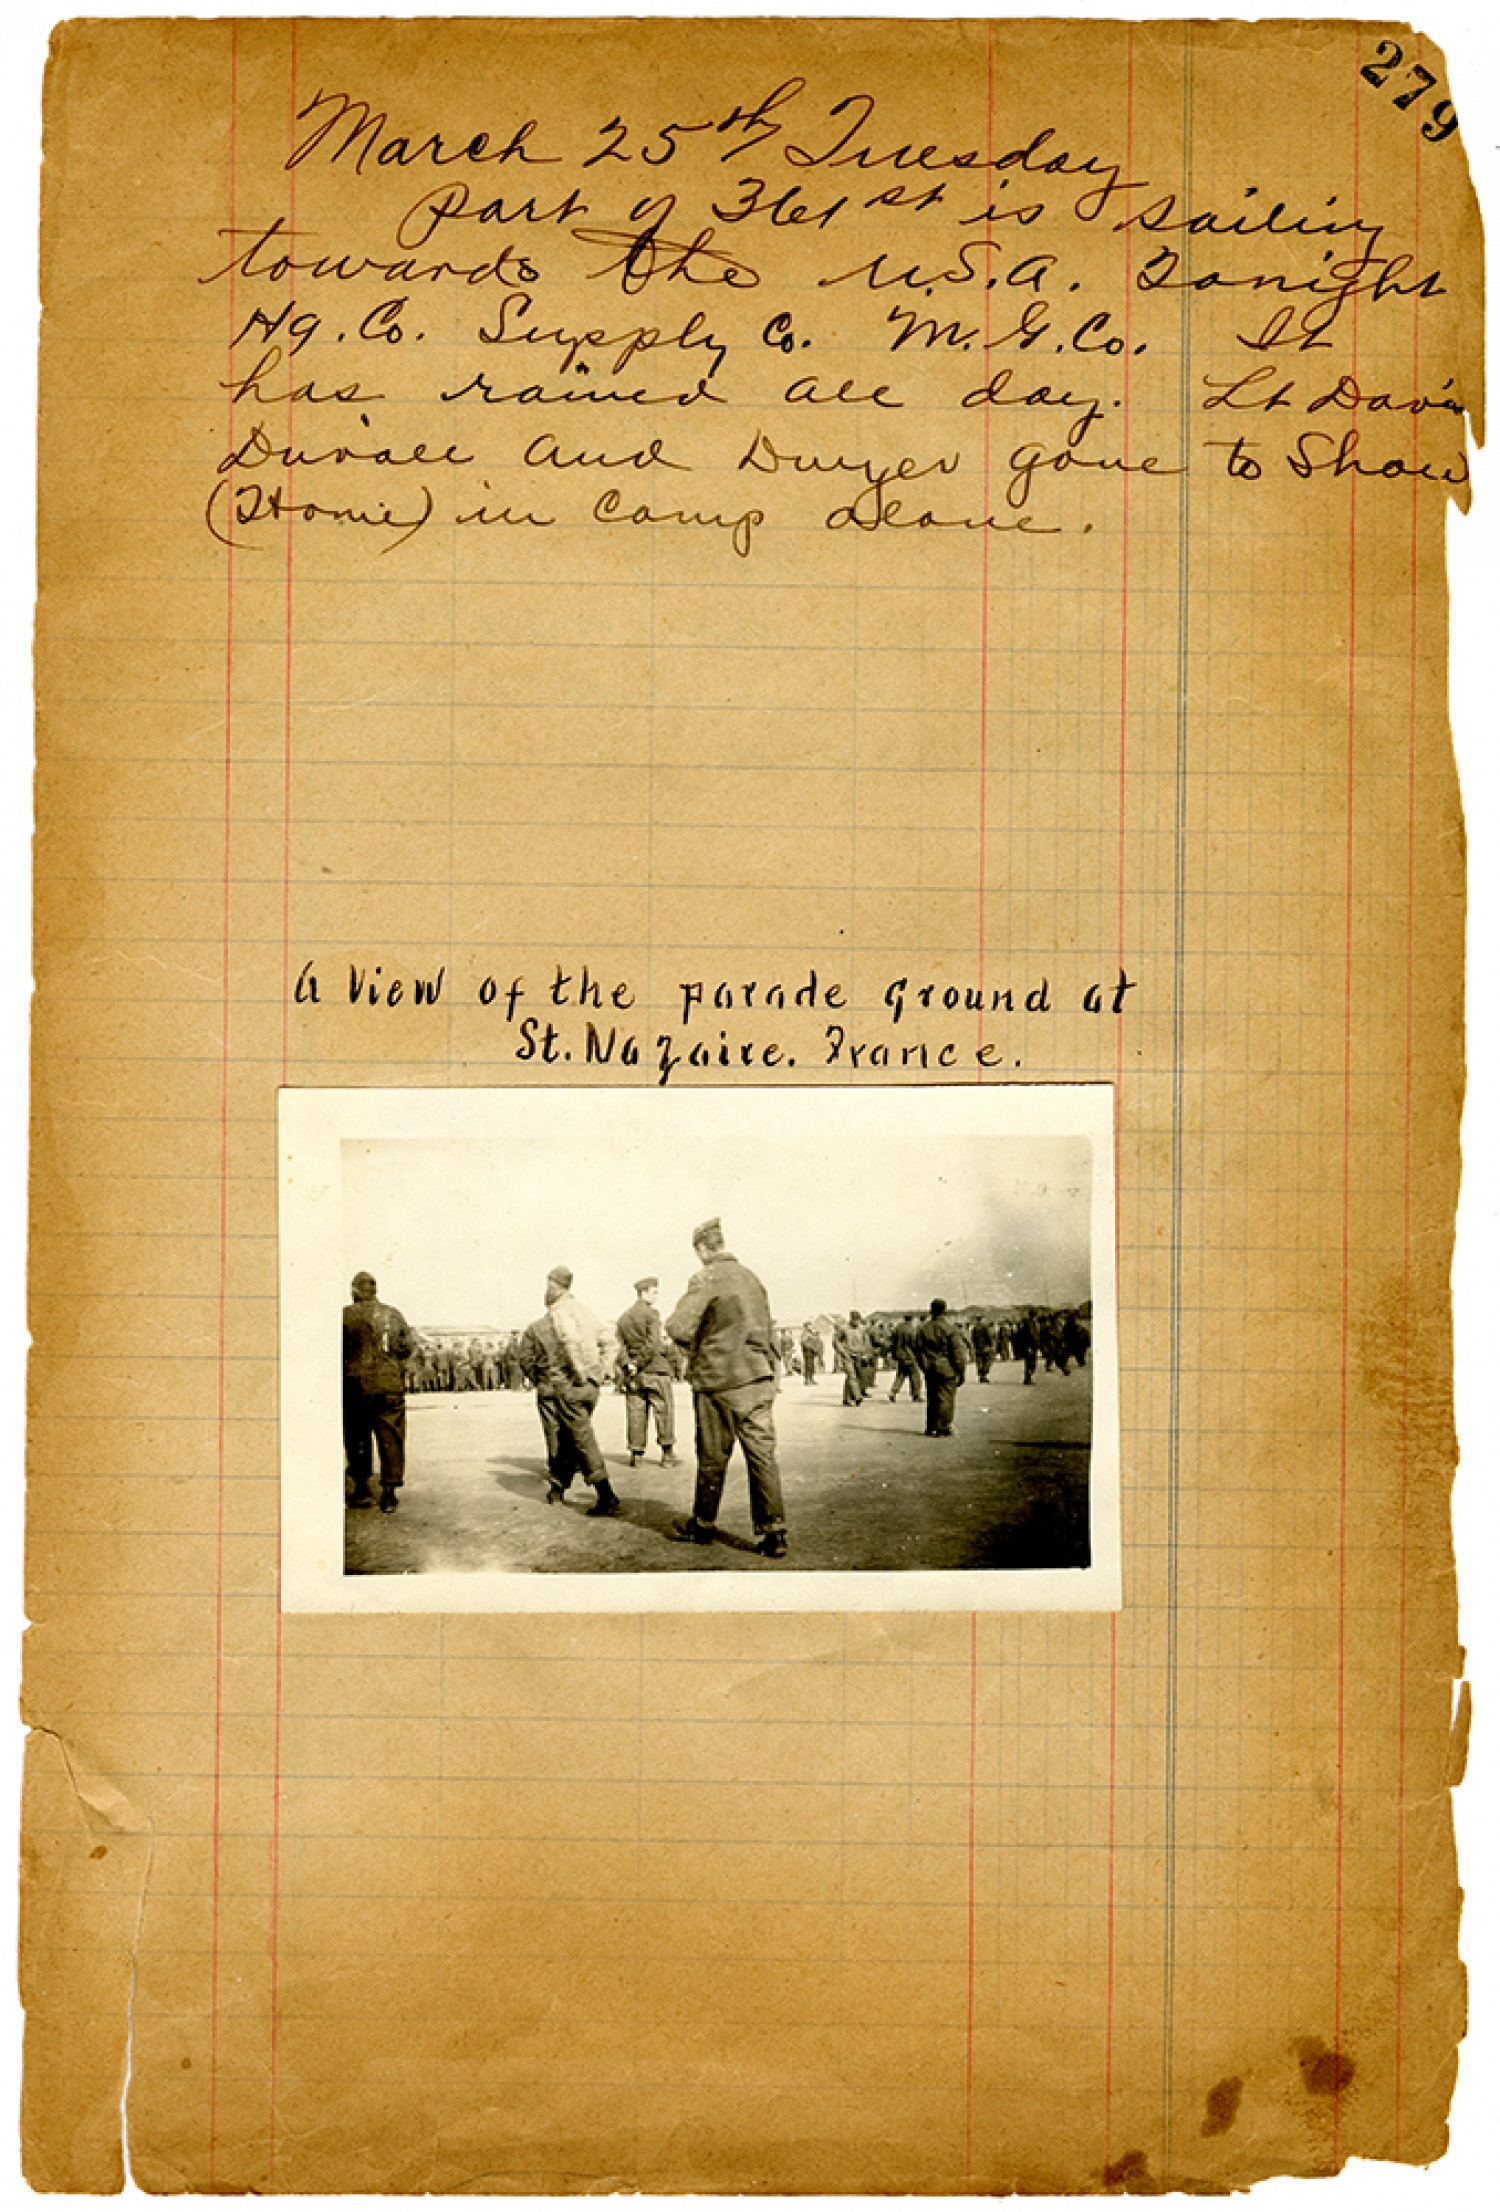 279
March 25th Tuesday
part of 361st is sailing
towards the U.S.A. Tonight
Hq. Co. Supply Co. M.G. Co. It
has rained all day. Lt Davis
Duvall and Dwyer gone to Show
(Home) in camp alone.
A View of the parade Ground at
St. Nazaire. France.